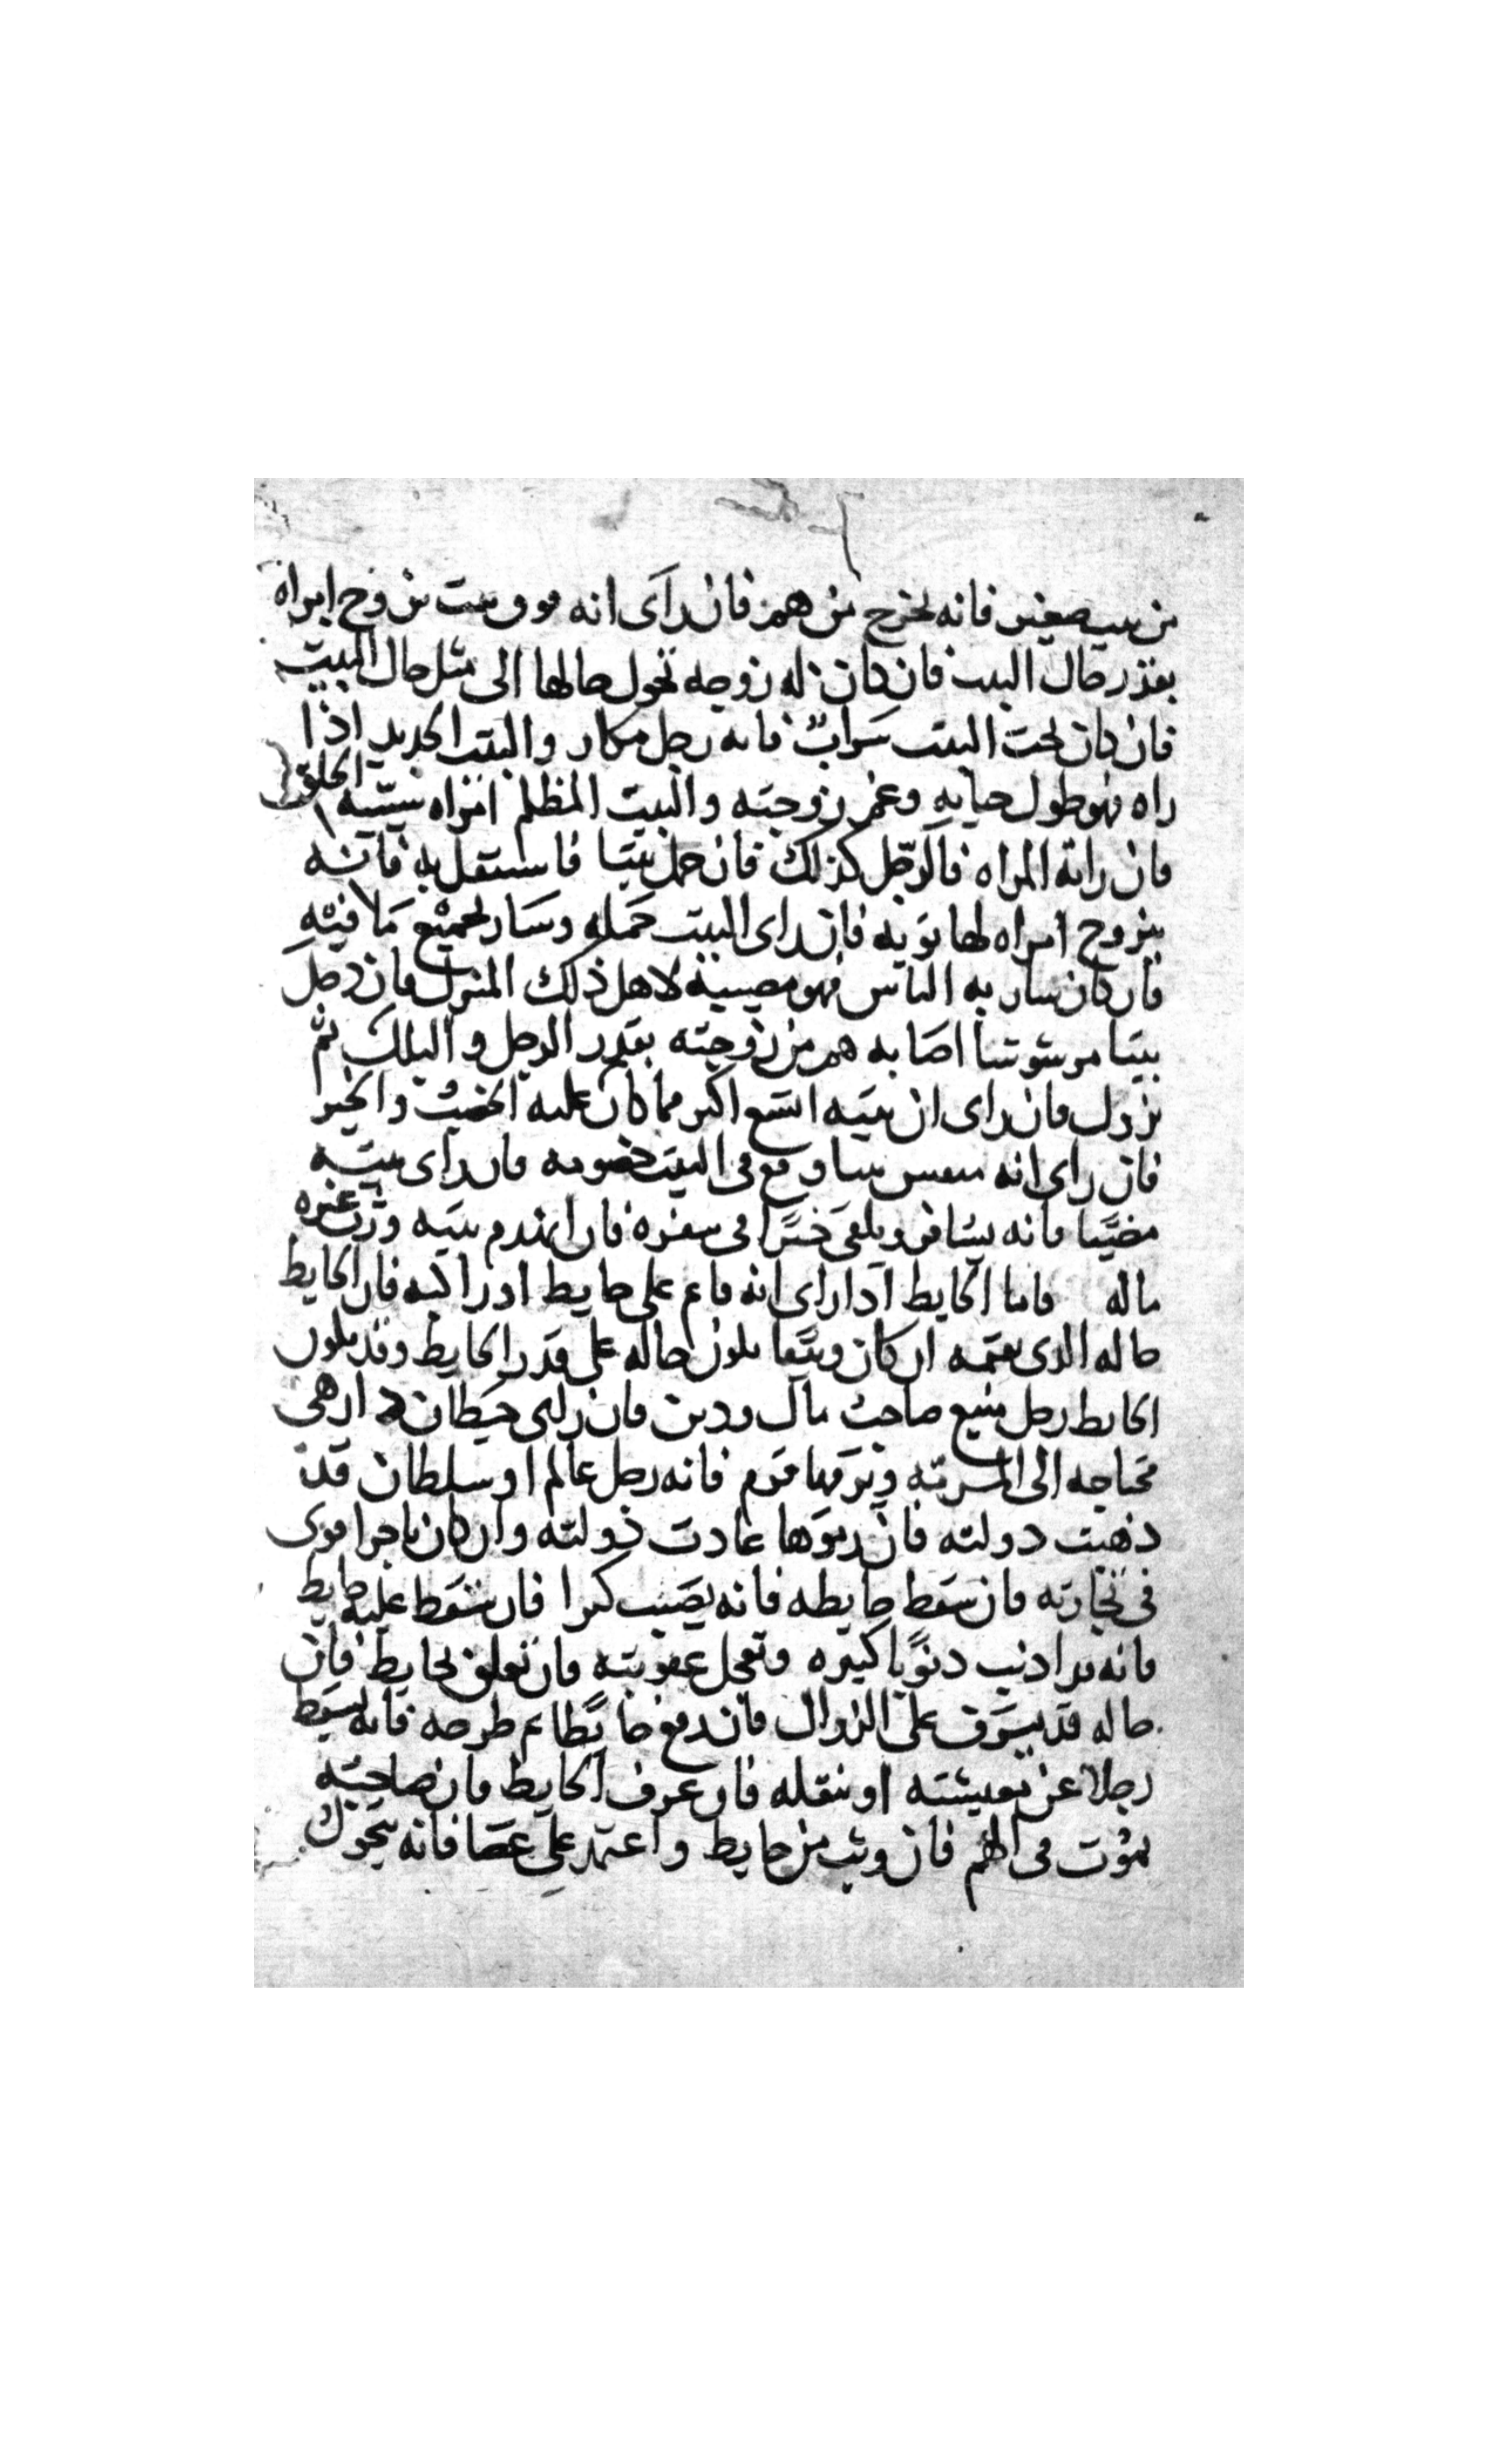 من بيت صغير فانه يخرج من هم فان رأى انه فوق بيت تزوج امراه
بقدر حال البيت فان كان له زوجه تحول حالها الى مثل حال البيت
فان كان تحت البيت سراب فانه رجل مكار والبيت الجديد اذا
راه فهو طول حياته وعمر زوجته والبيت المظلم امراه سيئة الخلق
فان راته المراه فالرجل كذلك فان حمل بيتا فاستقل به فانه
يتزوج امراه لها فان راى البيت حمله وسار بجميع ما فيه
فان كان سار به الناس فهو مصيبة لاهل ذلك المنزل فان دخل
بيتا مرشوشا اصابه هم من زوجته بقدر الوحل والبلل ثم
يزول فان راى ان بيته اتسع اكبر مما كان عليه الخصب والخير
فان راى انه بيتا وقع فى البيت خصومه فان رأى بيته
مضيا فانه يسافر ويلقى خيرا فى سفره فان انهدم بيته ورث غيره
ماله فاما الحايط اذا راى انه قام على حايط او راكبه فان الحايط
حاله الذى يقيمه ان كان وثيقا يكون حاله على قدر الحايط وقد يكون
الحايط رجل منيع صاحب مال ودين فان راى حيطان دار هى
محتاجه الى المرمه ويرمها قوم فانه رجل عالم او سلطان قد
ذهبت دولته فان رموها عادت دولته وان كان تاجرا قوى
فى تجارته فان سقط حايطه فانه يصيب كنزا فان سقط عليه حايط
فانه قد اذنب ذنوبا كثيره وتعجل عقوبته فان تعلق بحايط فان
حاله قد يشرف على الزوال فان دفع حايطا ثم طرحه فانه يسقط
رجلا عن معيشته او يقتله فان عرف الحايط فان صاحبه
يموت فى الهم فان وثب من حايط واعتمد على عصا فانه يتحول